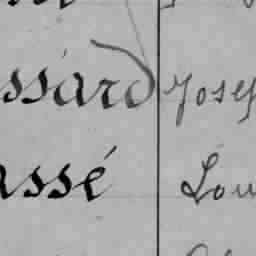 ssard Josep
assé Lou